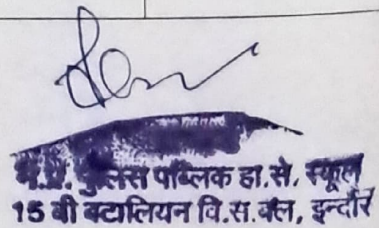 म.प्र. पुलिस पब्लिक हा.से. स्कूल
15 वी बटालियन वि.स.बल, इन्दौर